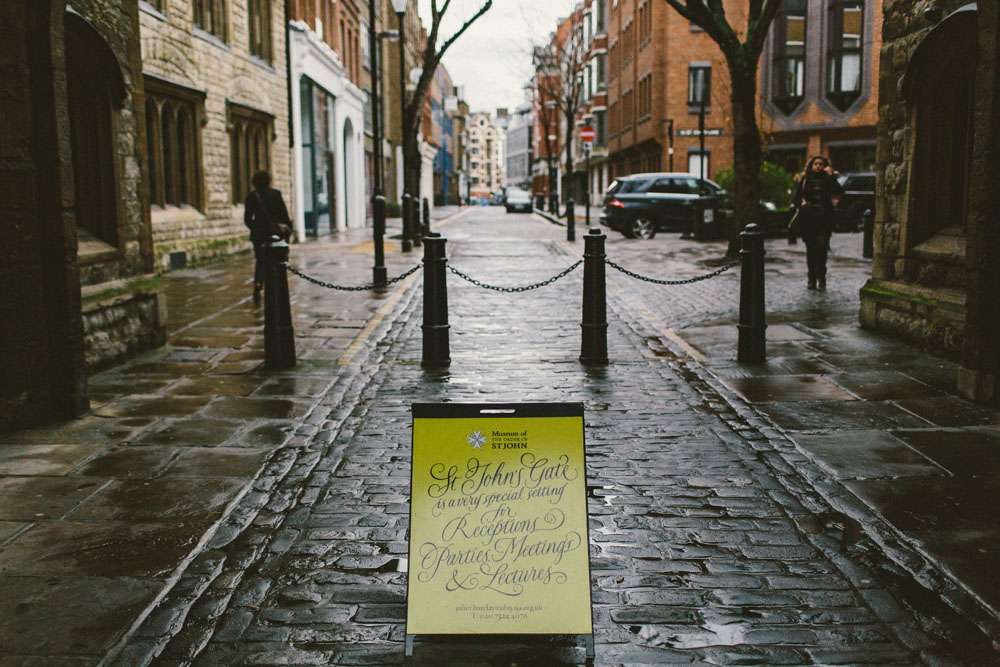 Museum of
THE ORDER OF
ST JOHN
St John's Gate
is a very special setting
for
Receptions
Parties, Meetings
& Lectures
T: 020 7324 4076